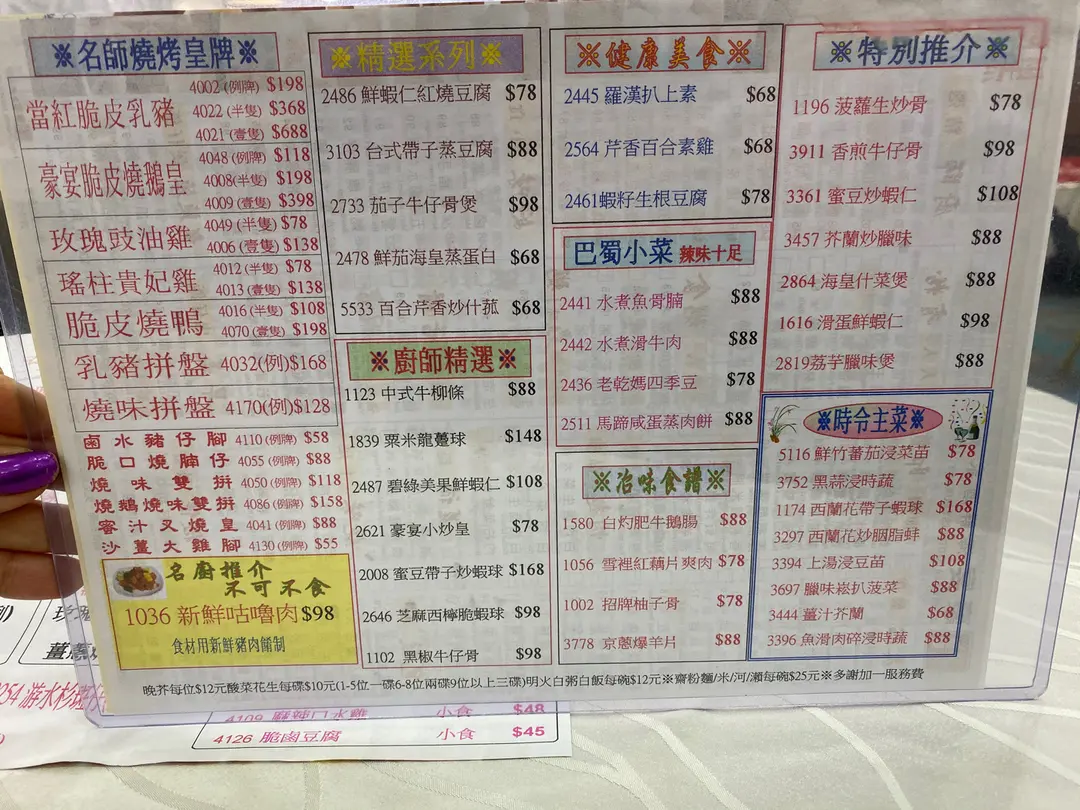 ※名師燒烤皇牌※
當紅脆皮乳豬
4002 (例牌) $198
4022 (半隻) $368
4021 (壹隻) $688
豪宴脆皮燒鵝皇
4048 (例牌) $118
4008(半隻) $198
4009 (壹隻) $398
玫瑰豉油雞
4049 (半隻) $78
4006 (壹隻) $138
瑤柱貴妃雞
4012 (半隻) $78
4013 (壹隻) $138
脆皮燒鴨
4016 (半隻) $108
4070 (壹隻) $198
乳豬拼盤 4032(例)$168
燒味拼盤 4170(例)$128
鹵水豬仔腳 4110 (例牌) $58
脆口燒腩仔 4055 (例牌) $88
燒味雙拼 4050 (例牌) $118
燒鵝燒味雙拼 4086 (例牌) $158
蜜汁叉燒皇 4041 (例牌) $88
沙薑大雞腳 4130 (例牌) $55
名廚推介
不可不食
1036 新鮮咕嚕肉 $98
食材用新鮮豬肉餔制
※精選系列※
2486 鮮蝦仁紅燒豆腐 $78
3103 台式帶子蒸豆腐 $88
2733 茄子牛仔骨煲 $98
2478 鮮茄海皇蒸蛋白 $68
5533 百合芹香炒什菰 $68
※廚師精選※
1123 中式牛柳條 $88
1839 粟米龍躉球 $148
2487 碧綠美果鮮蝦仁 $108
2621 豪宴小炒皇 $78
2008 蜜豆帶子炒蝦球 $168
2646 芝麻西檸脆蝦球 $98
1102 黑椒牛仔骨 $98
※健康美食※
2445 羅漢扒上素 $68
2564 芹香百合素雞 $68
2461蝦籽生根豆腐 $78
巴蜀小菜 辣味十足
2441 水煮魚骨腩 $88
2442 水煮滑牛肉 $88
2436 老乾媽四季豆 $78
2511 馬蹄咸蛋蒸肉餅 $88
※滋味食譜※
1580 白灼肥牛鵝腸 $88
1056 雪裡紅藕片爽肉 $78
1002 招牌柚子骨 $78
3778 京蔥爆羊片 $88
※特別推介※
1196 菠蘿生炒骨 $78
3911 香煎牛仔骨 $98
3361 蜜豆炒蝦仁 $108
3457 芥蘭炒臘味 $88
2864 海皇什菜煲 $88
1616 滑蛋鮮蝦仁 $98
2819荔芋臘味煲 $88
※時令主菜※
5116 鮮竹蕃茄浸菜苗 $78
3752 黑蒜浸時蔬 $78
1174 西蘭花帶子蝦球 $168
3297 西蘭花炒胭脂蚌 $88
3394 上湯浸豆苗 $108
3697 臘味崧扒菠菜 $88
3444 薑汁芥蘭 $68
3396 魚滑肉碎浸時蔬 $88
晚芥每位$12元酸菜花生每碟$10元(1-5位一碟6-8位兩碟9位以上三碟)明火白粥白飯每碗$12元※齋粉麵/米/河/瀨每碗$25元※多謝加一服務費
4109 麻辣口水雞 小食 $48
4126 脆鹵豆腐 小食 $45